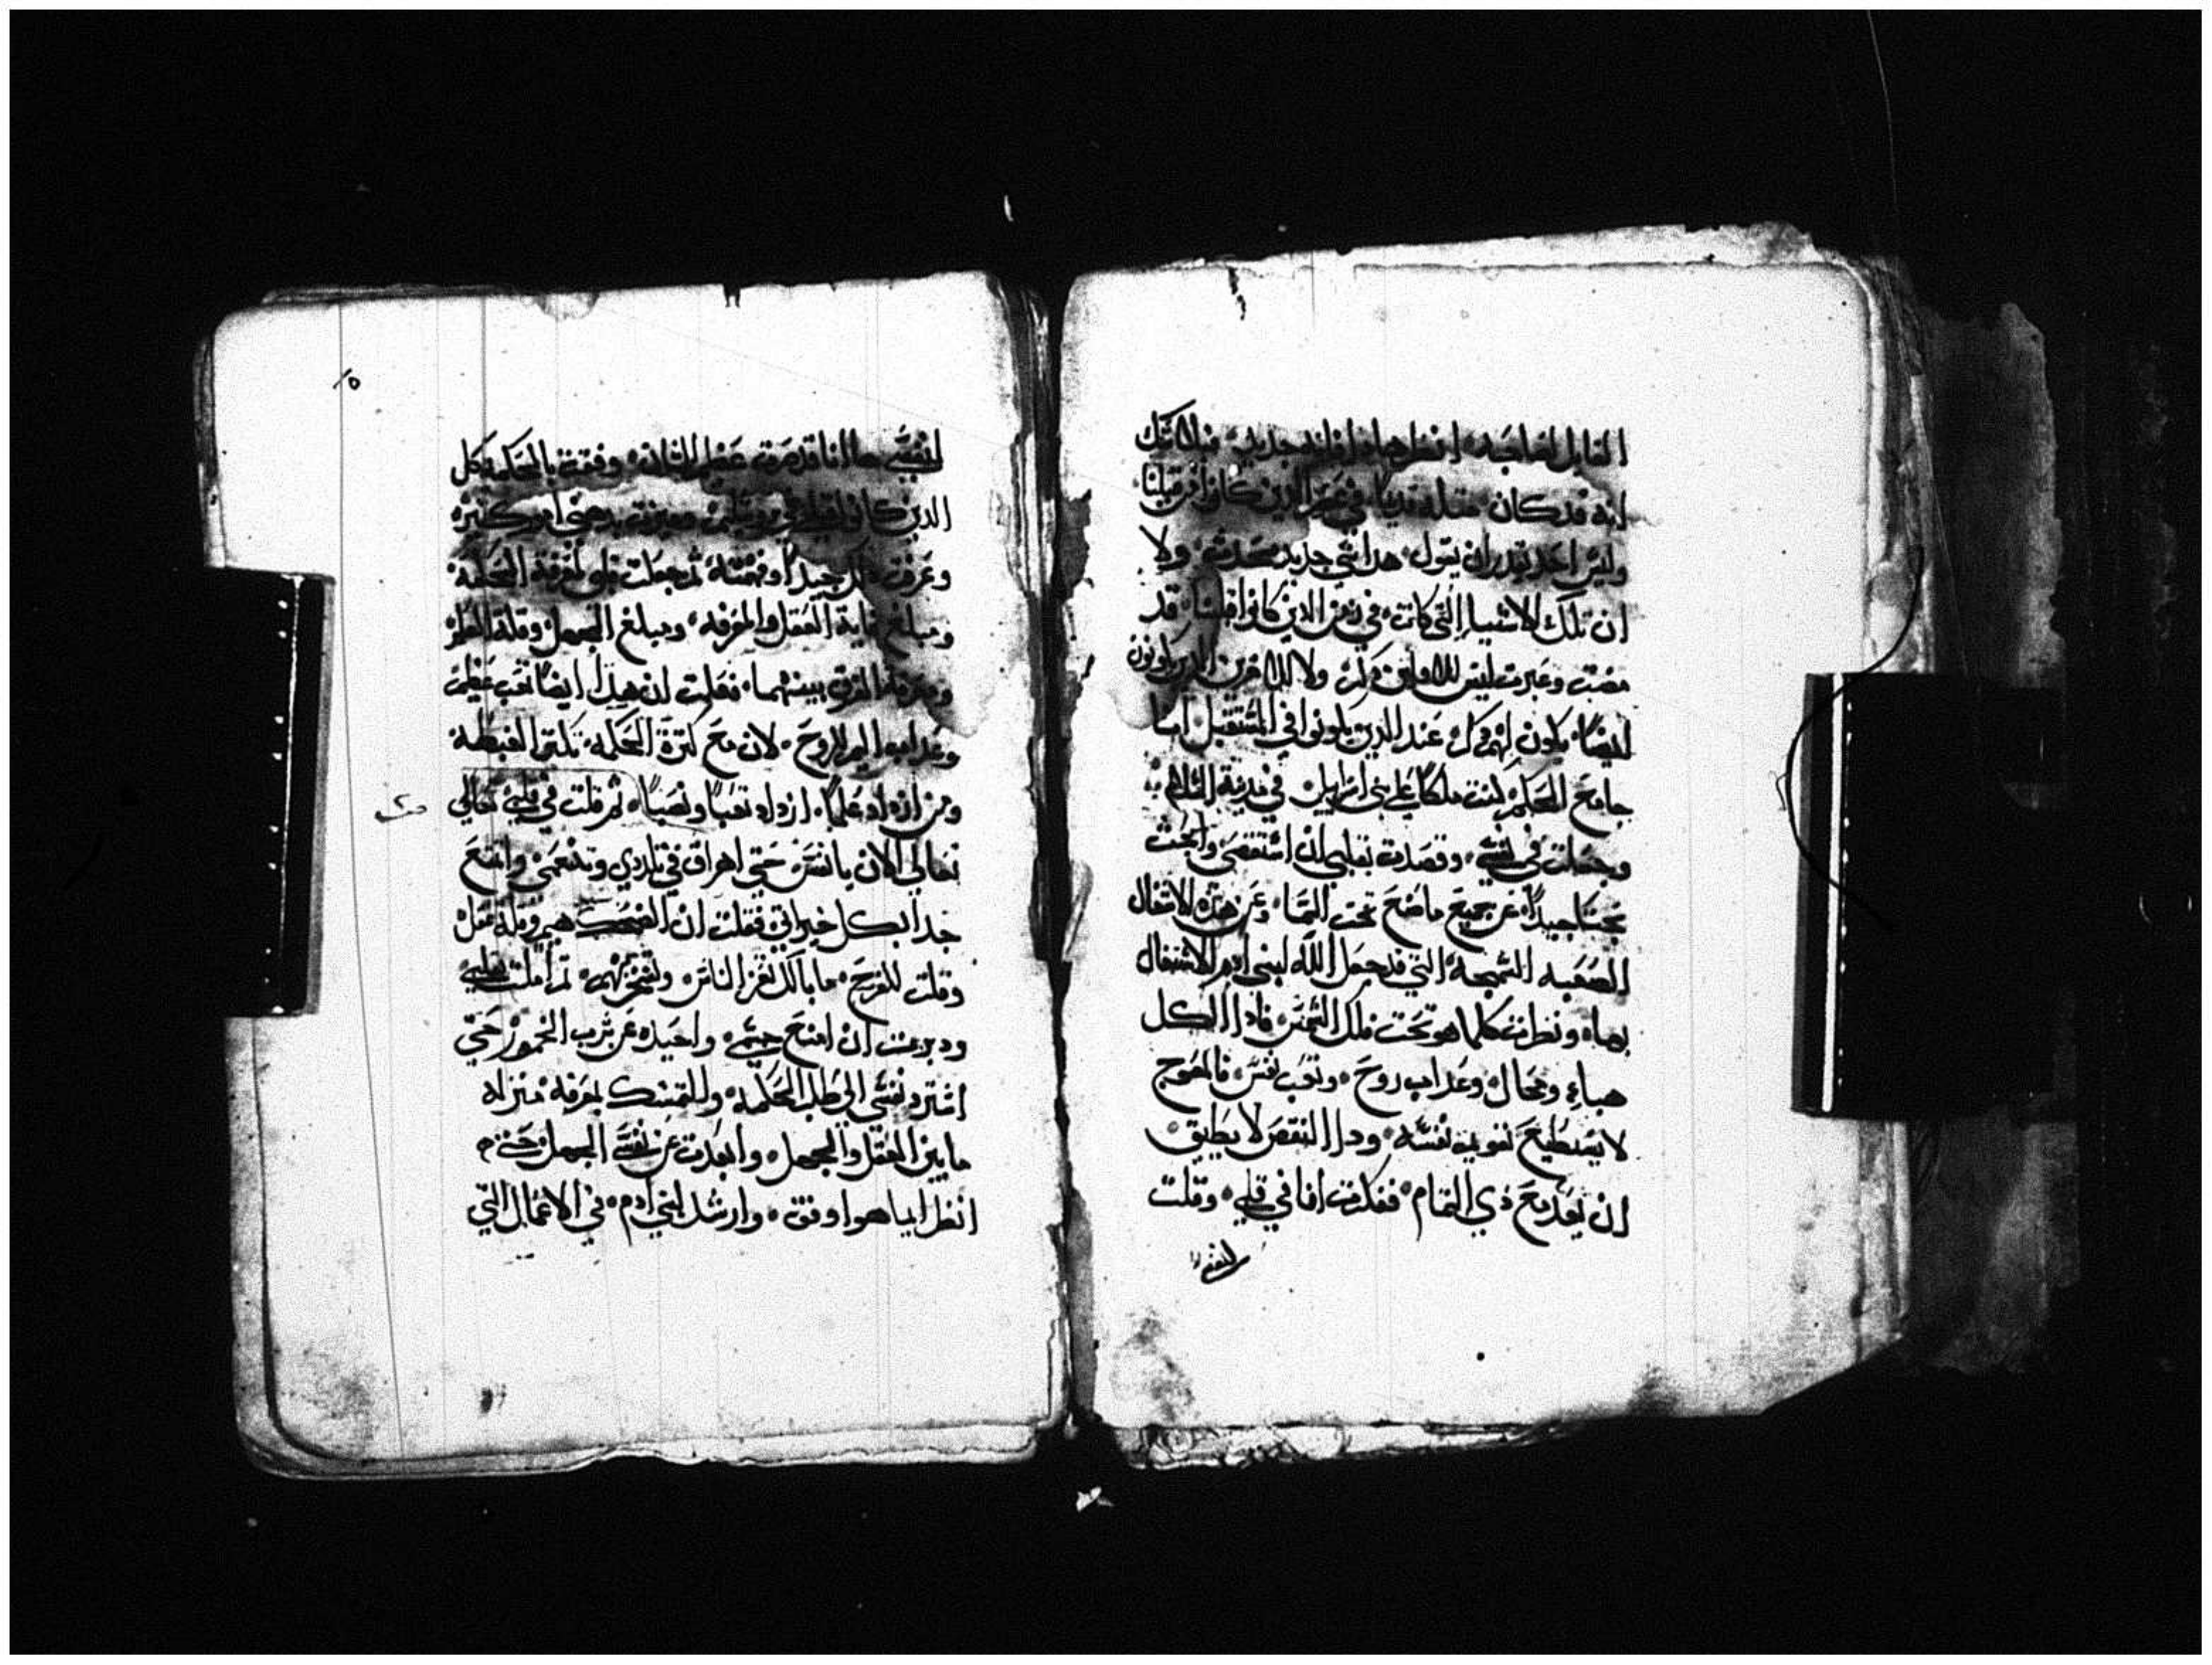 القايل لصاحبه انظر هاذا فانه جديد فبلا شك
انه قد كان مثله قديمًا في الذين كانوا من قبلنا
وليس احد يقدر ان يقول هدا شي جديد محدث ولا
ان تلك الاشيا التي كانت في زمن الدين كانوا قبلنا قد
مضت وعبرت ليس لها ولا ذكر ولا الدين ياتون
ايضًا يكون لهم ذكر عند الدين يكونوا في المستقبل انا
جامع الحكم كنت ملكًا على بني اسراييل في مدينة
وجعلت في نفسي وقصدت بقلبي ان استقصي وابحث
بحثًا جيدًا عن جميع ما صنع تحت السما وعن هذه الاشغال
الصعبه السمجه التي قد جعل الله لبني ادم الاشتغال
بها ونظرت كلما هو تحت فلك الشمس فادا الكل
هباء ومحال وعداب روح وتعب نفس فالمعوج
لا يستطيع تقويم نفسه ودا النقص لا يطيق
ان يعد مع ذي التمام ففكرت انا في قلبي وقلت
لنفسي
١٥
لنفسي ها انا قد صرت عظيم الشان وفقت بالحكمه كل
الدين كانوا قبلي في وميزت بدهني امور كثيره
وعرفت جيدًا وفهمته ثم جعلت قلبي لمعرفة الحكمه
ومبلغ غاية العقل والمعرفه ومبلغ الجهل وقلة العلم
ومعرفة الفرق بينهما فعلمت ان هدا ايضًا تعب عظيم
وعداب اليم للروح لان مع كثرة الحكمه تكثر الغيظه
ومن ازداد علمًا ازداد تعبًا ونصبًا ثم قلت في قلبي تعالي
تعالي الان يا نفس حتي في وتتنعمي واتمتع
جدا بكل خيراتي فقلت ان الضحك وقلة عقل
وقلت للفرح ما بالك تغر الناس ثم املت بقلبي
ودبرت ان امنع جسمي واحيده عن شرب الخمور حتي
نفسي الي طلب الحكمه والتمسك بمعرفة منزله
ما بين العقل والجهل وابعدت عن نفسي الجهل حتي
انظر ايما هو اوفق وارشد لبني ادم في الاعمال التي